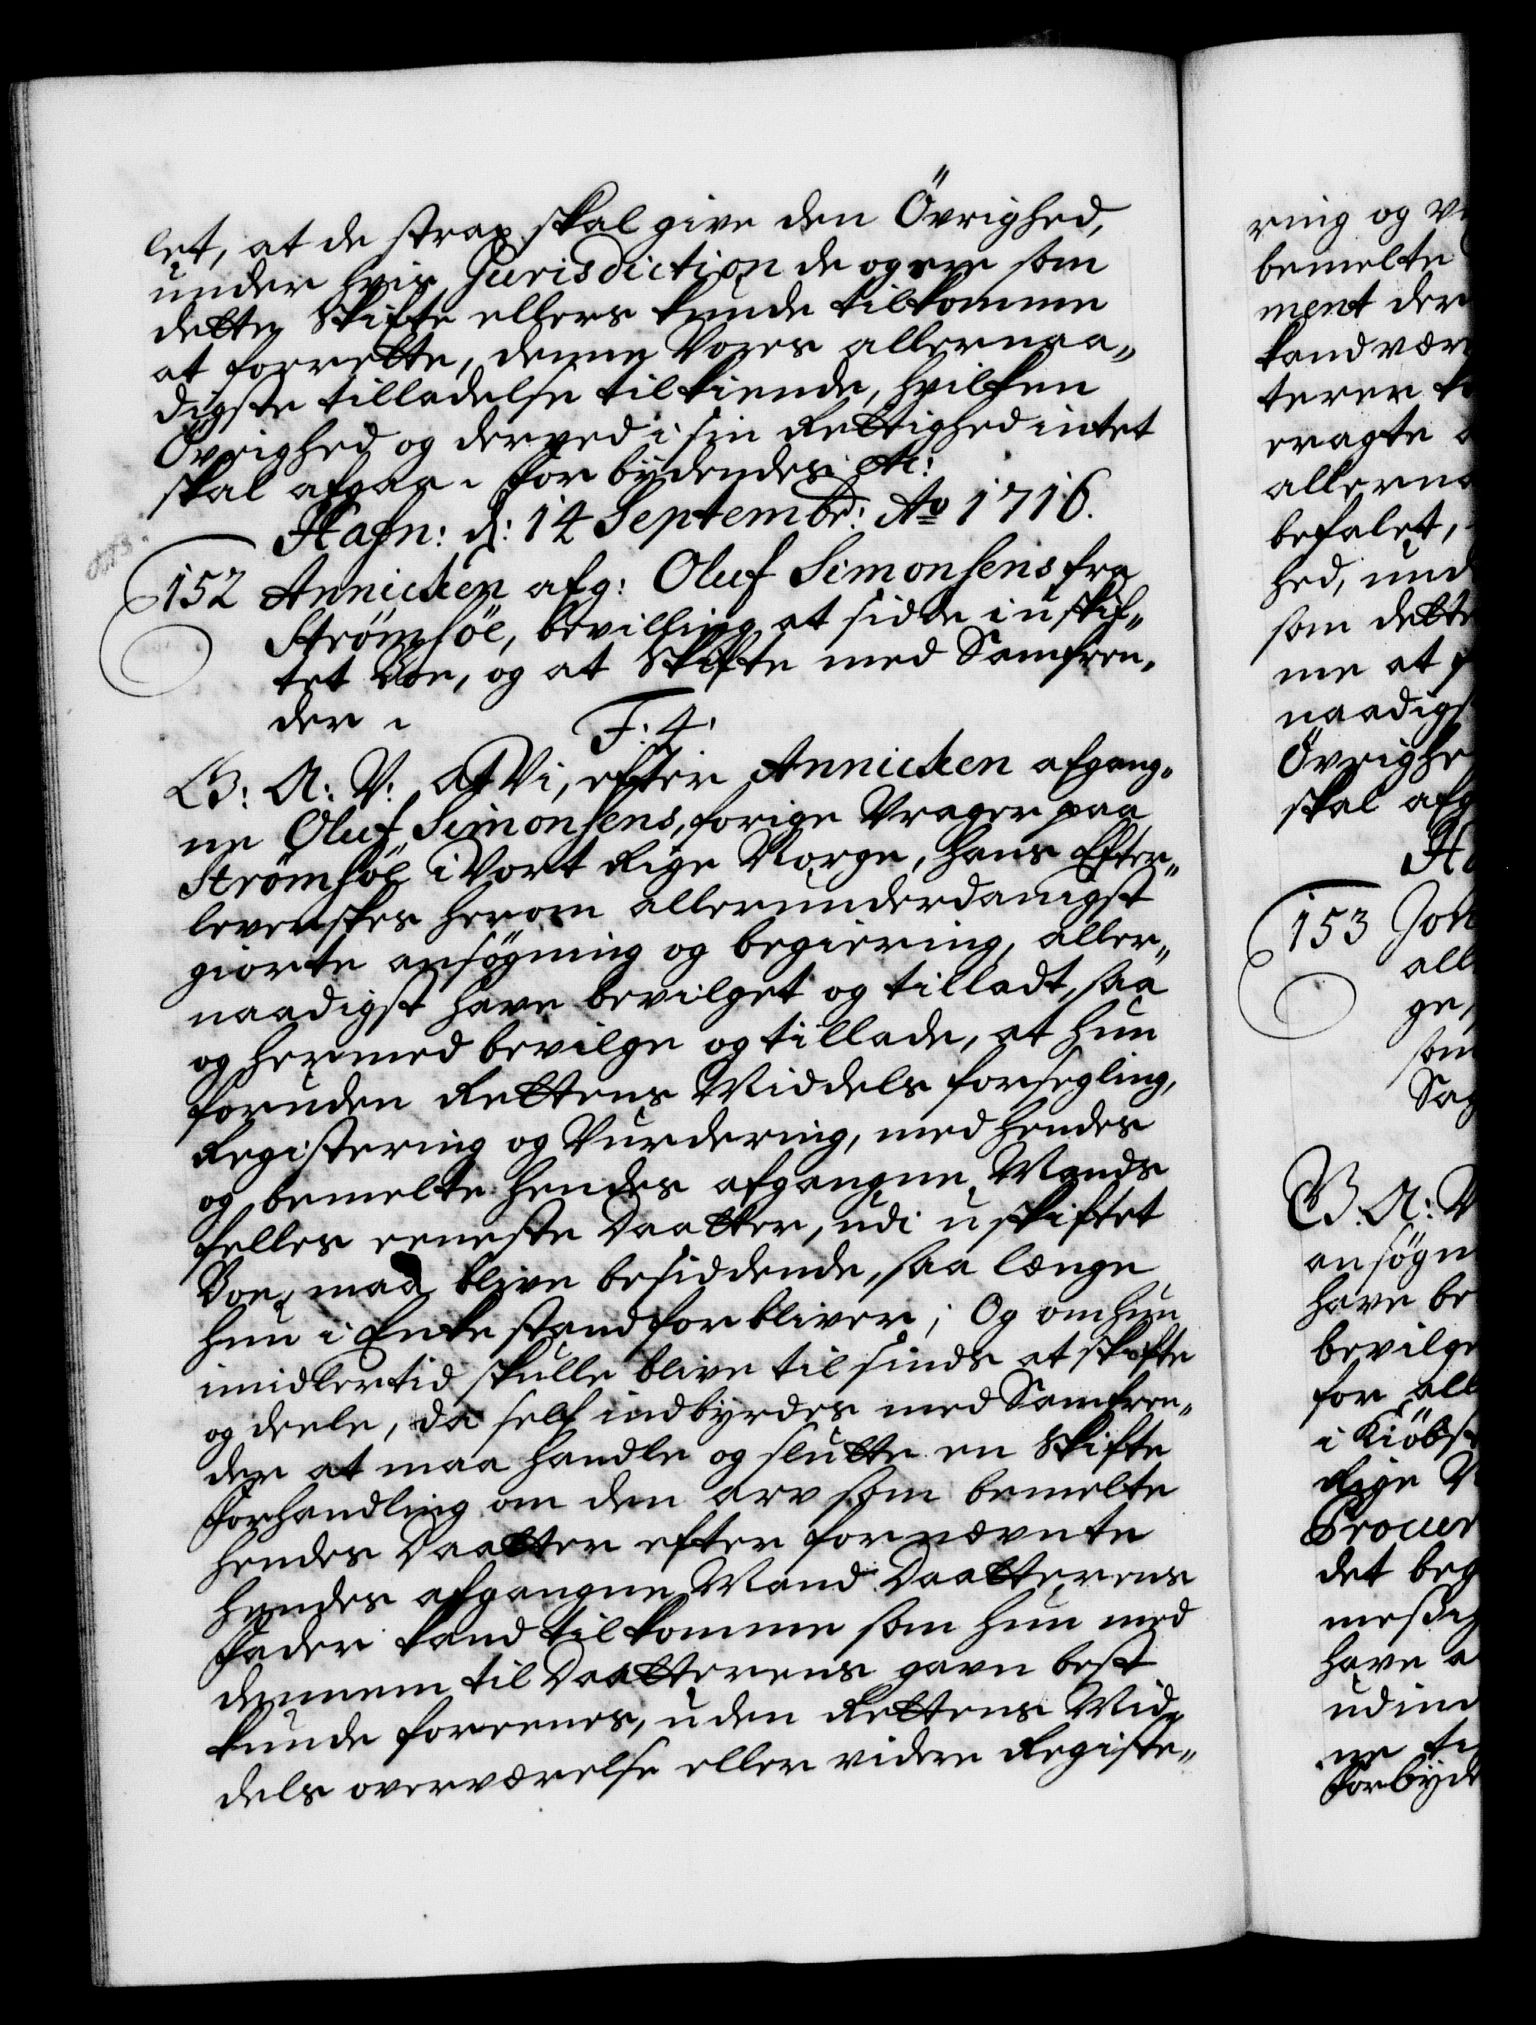 let, at de strax skal give den Övrighed,
under hvis Jurisdiction de og ere som
dette Skifte ellers kunde tilkomme
at forrette, denne Vores allernaa„
digste tilladelse tilkiende, hvilken
Övrighed og derved i sin Rettighed intet
skal afgaa. Forbydendes etc:
Hafn: d: 14 Septembr: Ao 1716.
152 Annicken afg: Oluf Simonsens fra
Strömsöe, bevilling at sidde i uskif„
tet boe, og at Skifte med Samfren„
der.
F: 4.
G: A: V: At Vi, efter Annicken afgang„
ne Oluf Simonsens, forige Vrager paa
Strömsöe i Vort Rige Norge, hans Efter„
leverskes herom allerunderdanigst
giorte ansögning og begiering, aller„
naadigst have bevilget og tilladt, saa
og hermed bevilge og tillade, at hun
foruden Rettens Middels forsegling,
Registering og Vurdering, med hendes
og bemelte hendes afgangne Mands
felles eeneste Daatter, udi uskiftet
Boe maa blive besiddende, saa længe
hun i Enkestand forbliver; Og om hun
imidlertid skulle blive til sinds at skifte
og deele, da self indbyrdes med Samfren„
der at maa handle og slutte en Skifte
Forhandling om den arv som bemelte
hendes Daatter efter fornævnte
hendes afgangne Mand Daatterens
Fader kand tilkomme som hun med
dennem til Daatterens gavn best
kunde foreenes, uden Rettens Mid„
dels overværelse eller videre Registe„
ring og V
bemelte
ment der
kand vær
terer
eragte
allerna
befalet,
hed, und
som dette
me at f
naadigs
Övrighe
skal afg
153 Joh
all
ge,
som
Sag
G. A: V
ansögn
have be
bevilge
for all
i Kiöbst
Rige
Procur
det beg
messig
have a
udind
ne ti
Forbyde